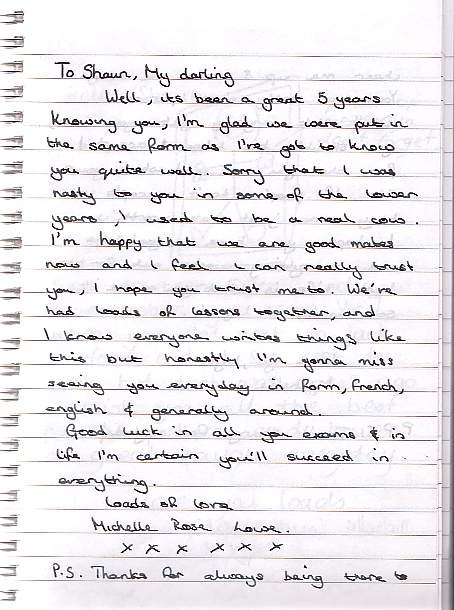 To Shaun, My darling
Well, its been a great 5 years
knowing you, I'm glad we were put in
the same form as I've got to know
you quite well. Sorry that I was
nasty to you in some of the lower
years, I used to be a real cow.
I'm happy that we are good mates
now and I feel I can really trust
you, I hope you trust me to. We're
had loads of lessons together, and
I know everyone writes things like
this but honestly I'm gonna miss
seeing you everyday in form, french,
english & generally around.
Good luck in all you exams & in
life I'm certain you'll succeed in
everything.
Loads of love
Michelle Rose Lowse.
x x x x x x
P.S. Thanks for always being there to